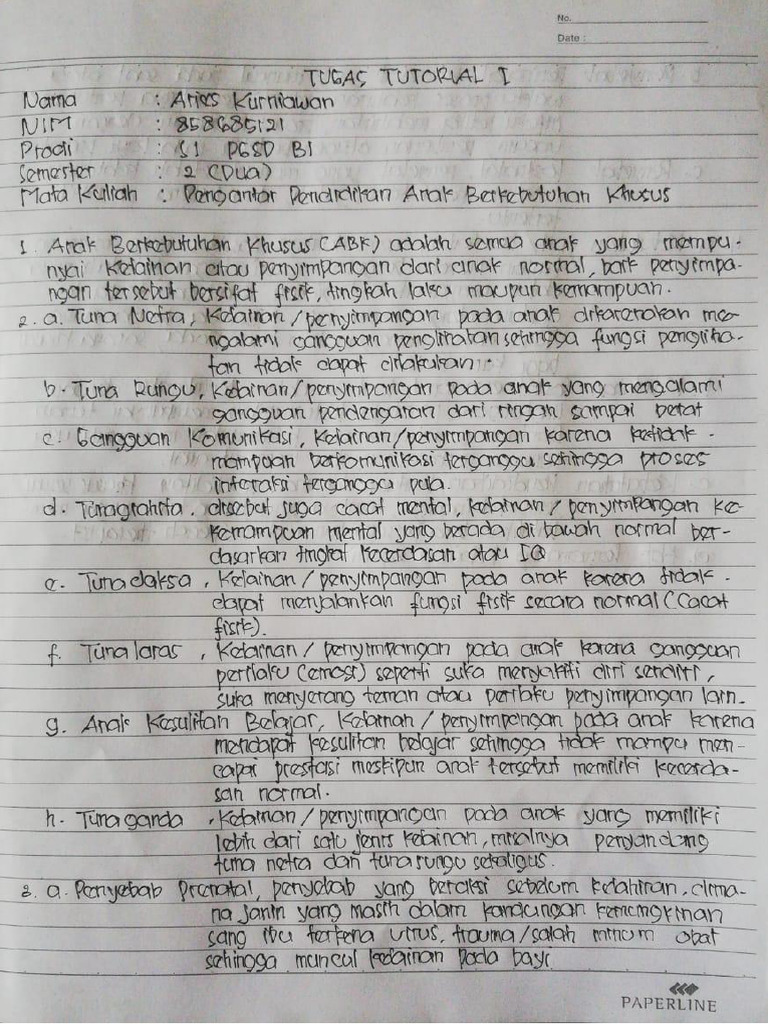 No.
Date :
TUGAS TUTORIAL I
Nama : Aries Kurniawan
NIM : 858685121
Prodi : S1 PGSD BI
Semester : 2 (Dua)
Mata Kuliah : Pengantar Pendidikan Anak Berkebutuhan Khusus
1. Anak Berkebutuhan Khusus (ABK) adalah semua anak yang mempu-
nyai kelainan atau penyimpangan dari anak normal, baik penyimpa-
ngan tersebut bersifat fisik, tingkah laku maupun kemampuan.
2. a. Tuna Netra, Kelainan/penyimpangan pada anak dikarenakan me-
ngalami gangguan penglihatan sehingga fungsi pengliha-
tan tidak dapat dilakukan.
b. Tuna Rungu, Kelainan/penyimpangan pada anak yang mengalami
gangguan pendengaran dari ringan sampai berat
c. Gangguan Komunikasi, Kelainan/penyimpangan karena ketidak-
mampuan berkomunikasi terganggu sehingga proses
interaksi terganggu pula.
d. Tunagrahita, disebut juga cacat mental, kelainan/penyimpangan ke-
kemampuan mental yang berada di bawah normal ber-
dasarkan tingkat kecerdasan atau IQ
e. Tunadaksa, Kelainan/penyimpangan pada anak karena tidak
dapat menjalankan fungsi fisik secara normal (Cacat
fisik).
f. Tuna laras, Kelainan/penyimpangan pada anak karena gangguan
perilaku (emosi) seperti suka menyakiti diri sendiri,
suka menyerang teman atau perilaku penyimpangan lain.
g. Anak Kesulitan Belajar, Kelainan/penyimpangan pada anak karena
mendapat kesulitan belajar sehingga tidak mampu men-
capai prestasi meskipun anak tersebut memiliki kecerda-
san normal.
h. Tuna ganda, Kelainan/penyimpangan pada anak yang memiliki
lebih dari satu jenis kelainan, misalnya penyandang
tuna netra dan tuna rungu sekaligus.
3. a. Penyebab Prenatal, penyebab yang beraksi sebelum kelahiran, dima-
na janin yang masih dalam kandungan kemungkinan
sang ibu terkena virus, trauma/salah minum obat
sehingga muncul kelainan pada bayi
PAPERLINE